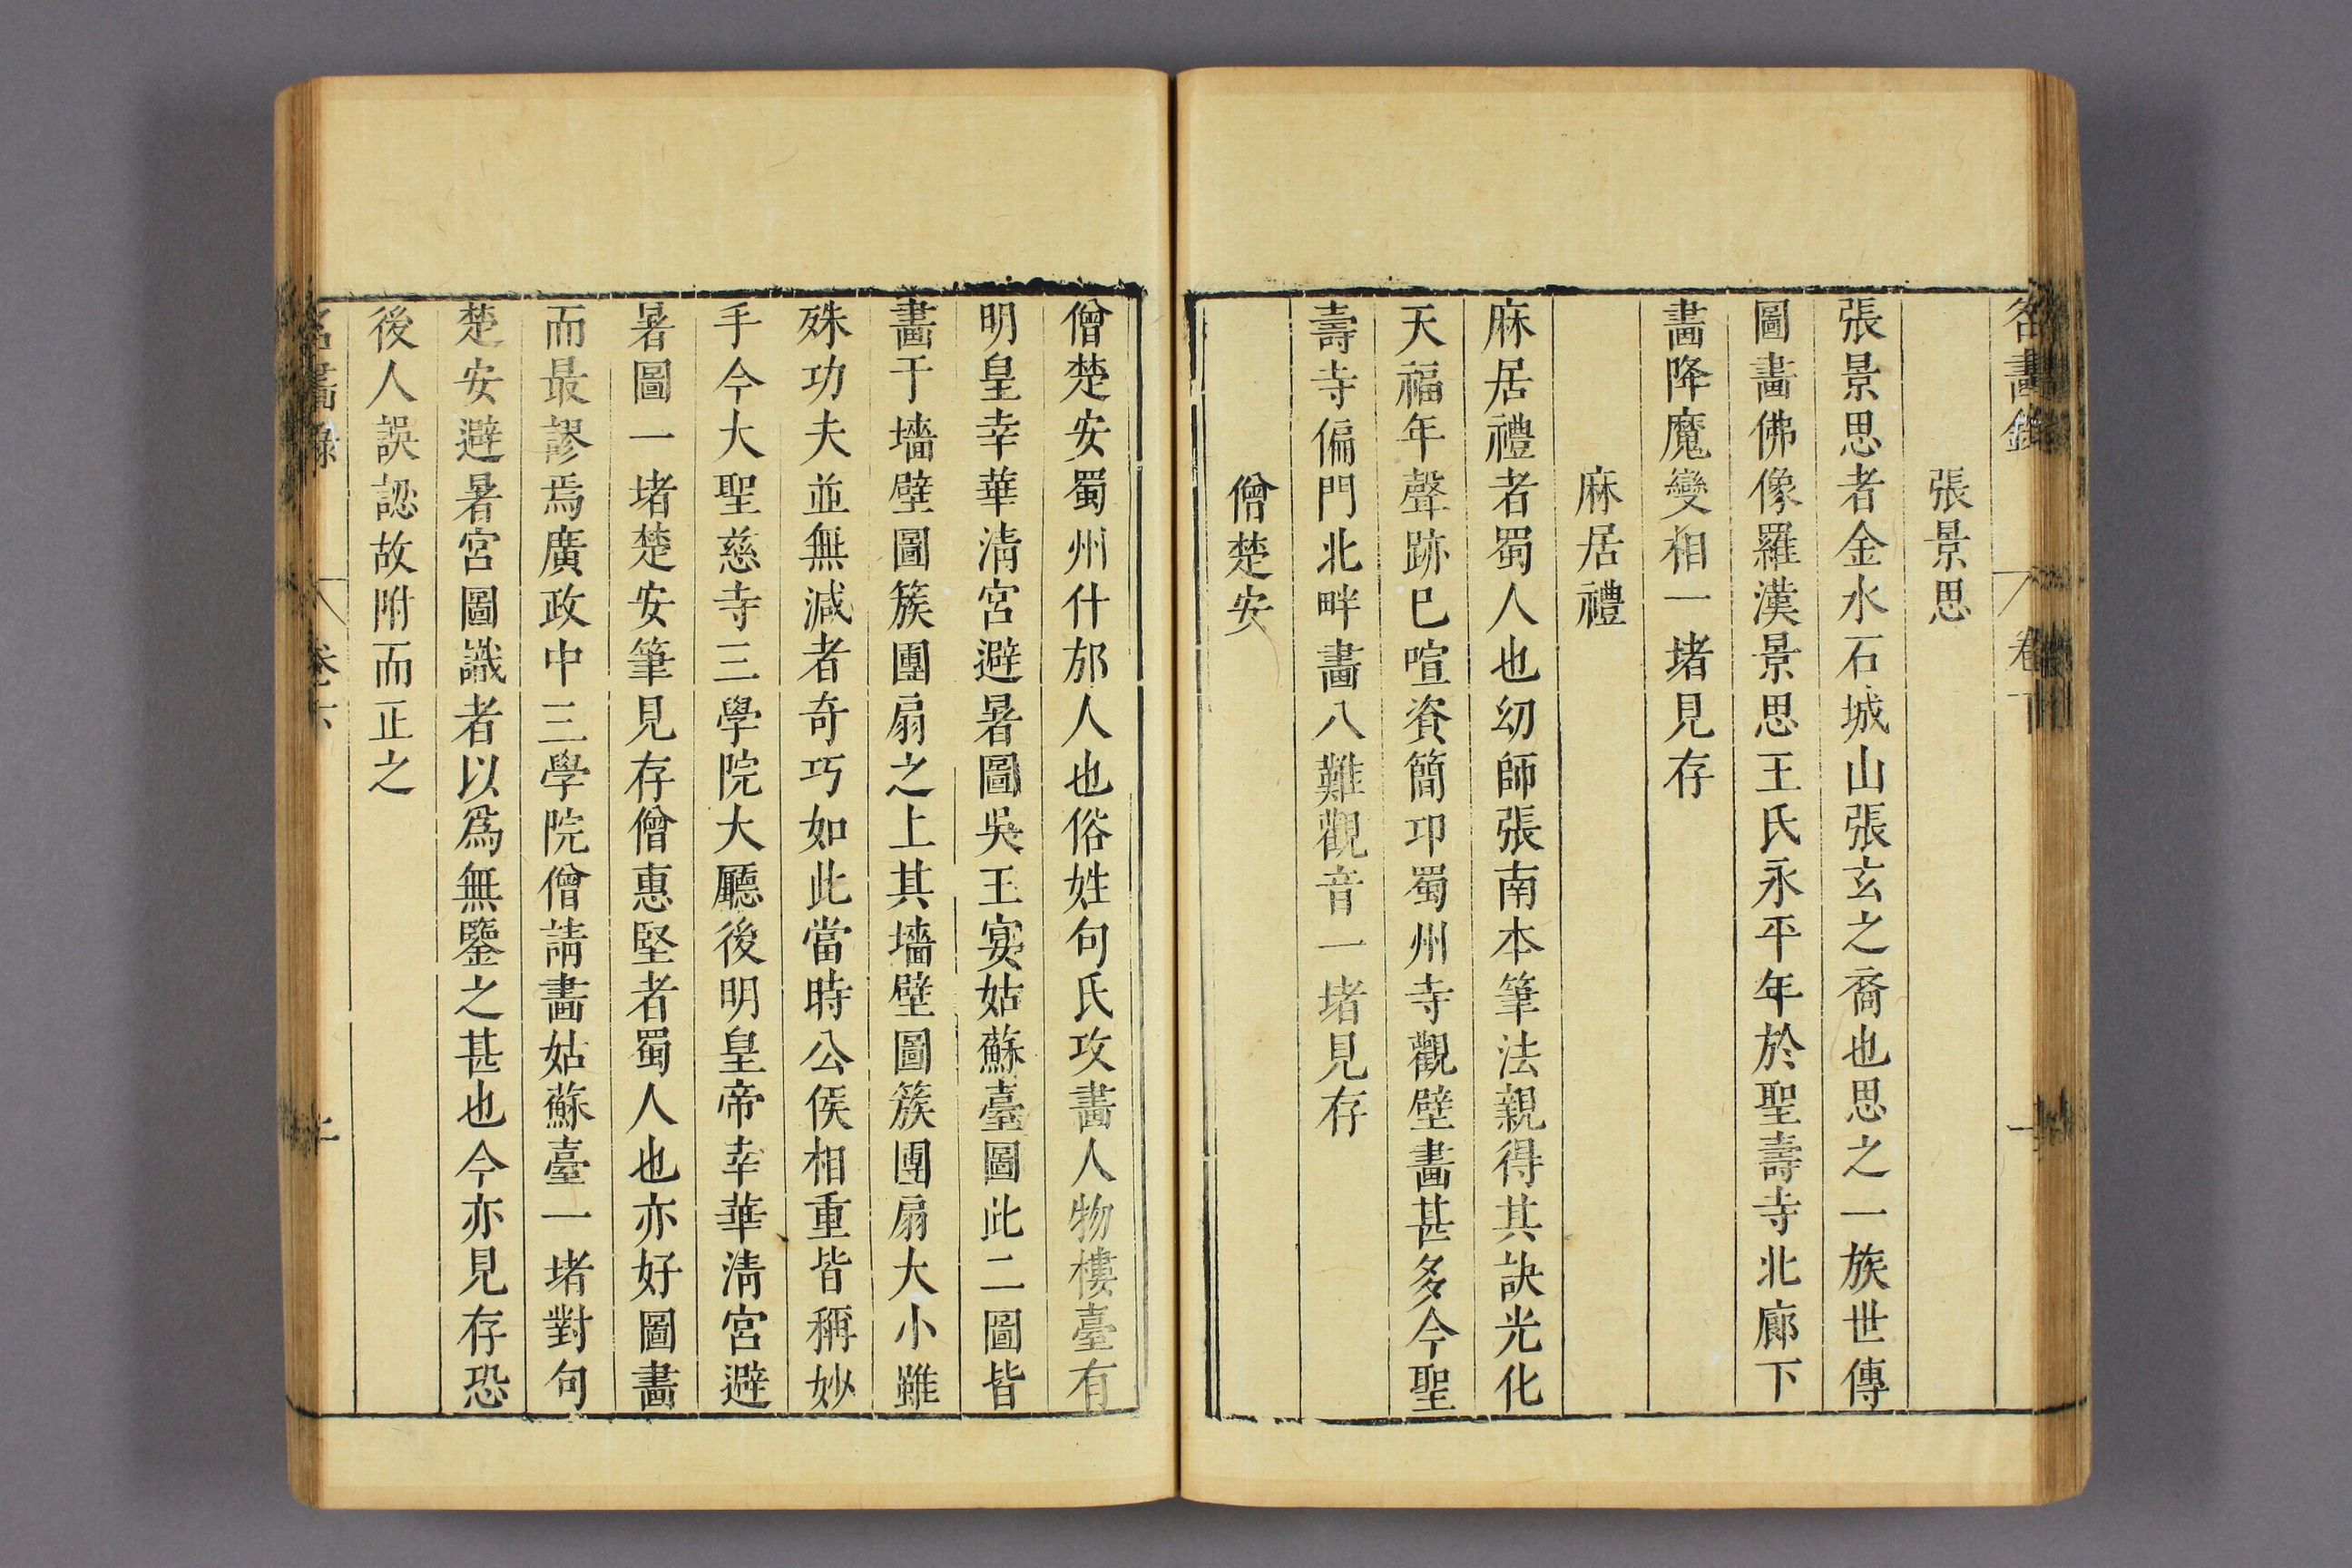 名畫錄 卷下
張景思
張景思者金水石城山張玄之裔也思之一族世傳
圖畫佛像羅漢景思王氏永平年於聖壽寺北廊下
畫降魔變相一堵見存
麻居禮
麻居禮者蜀人也幼師張南本筆法親得其訣光化
天福年聲跡巳喧資簡卭蜀州寺觀壁畫甚多今聖
壽寺偏門北畔畫八難觀音一堵見存
僧楚安
僧楚安蜀州什邡人也俗姓句氏攻畫人物樓臺有
明皇幸華清宮避暑圖吳王宴姑蘇臺圖此二圖皆
畫于墻壁圖簇團扇之上其墻壁圖簇團扇大小雖
殊功夫並無減者奇巧如此當時公侯相重皆稱妙
手今大聖慈寺三學院大廳後明皇帝幸華清宮避
暑圖一堵楚安筆見存僧惠堅者蜀人也亦好圖畫
而最謬焉廣政中三學院僧請畫姑蘇臺一堵對句
楚安避暑宮圖識者以爲無鑒之甚也今亦見存恐
後人誤認故附而正之
名畫錄